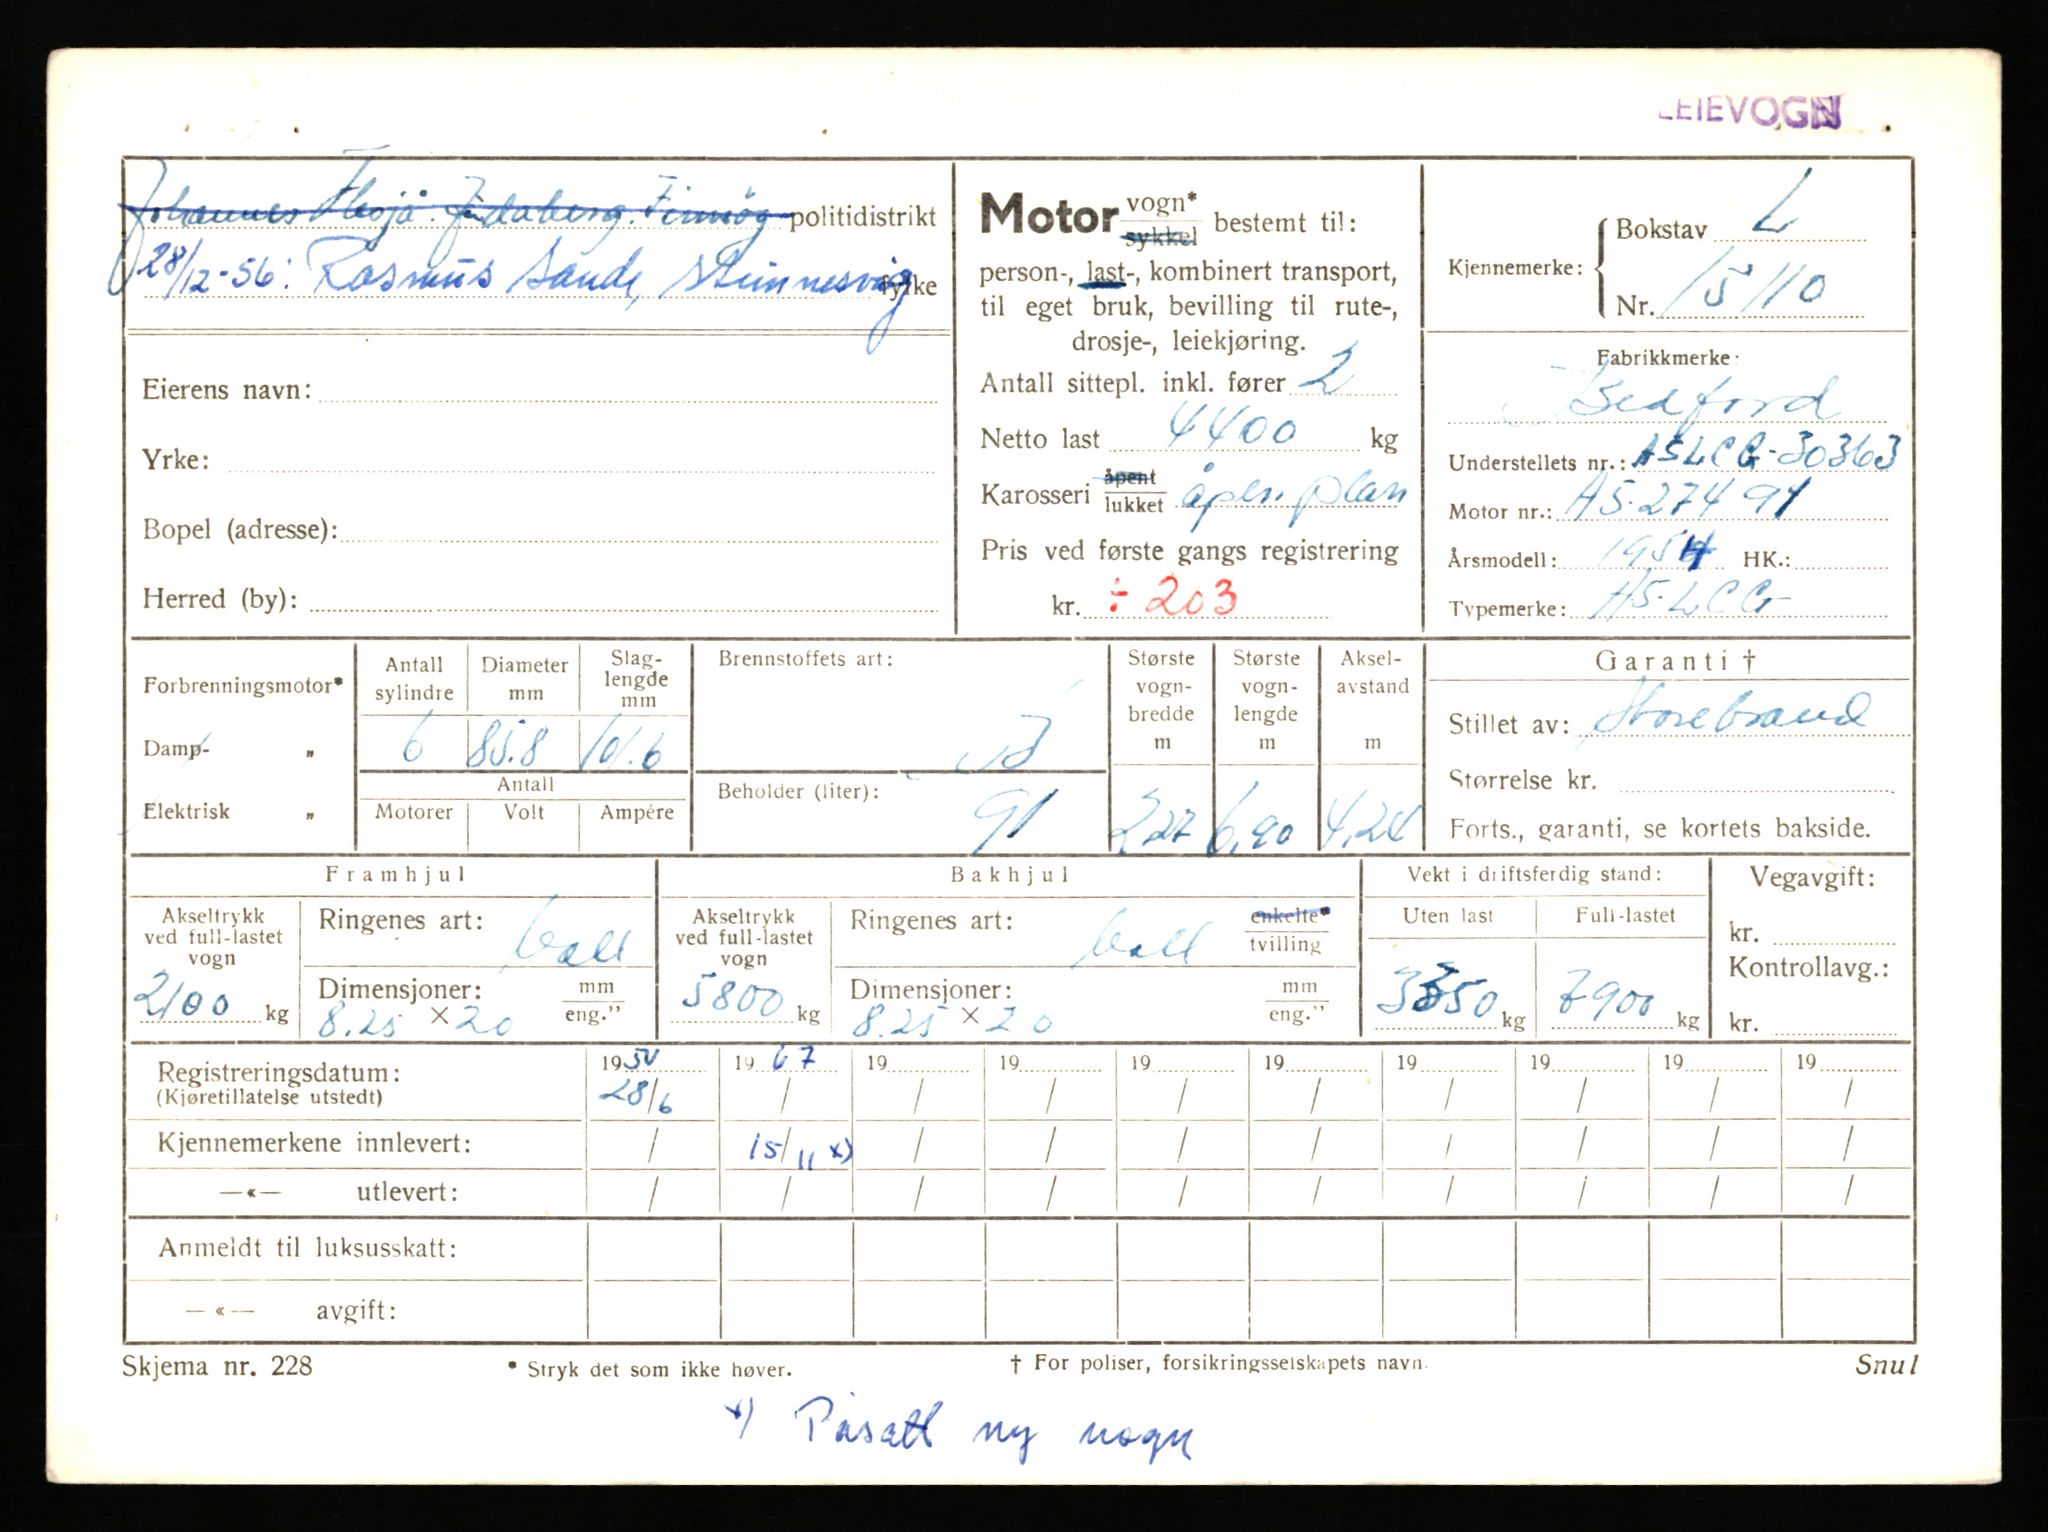 LEIEVOGN
Johannes politidistrikt
28/12-56: Rasmus Sande, fylke
Eierens navn:
Yrke:
Bopel (adresse):
Herred (by):
Motor vogn* sykkel bestemt til:
person-, last-, kombinert transport,
til eget bruk, bevilling til rute-,
drosje-, leiekjøring.
Antall sittepl. inkl. fører 2
Netto last 4400 kg
Karosseri åpent lukket åpen plan
Pris ved første gangs registrering
kr. ÷ 203
Kjennemerke: Bokstav L
Nr. 15110
Fabrikkmerke:
Bedford
Understellets nr.: A5LCG-30363
Motor nr.: A5-27491
Årsmodell: 1954 HK.:
Typemerke: A5LCG
Forbrenningsmotor*
Damp- „
Elektrisk „
Antall sylindre Diameter mm Slag-lengde mm
6 85.8 101.6
Antall
Motorer Volt Ampére
Brennstoffets art:
Beholder (liter): 91
Største vogn-bredde m 2,27
Største vogn-lengde m 6,90
Aksel-avstand m 4,24
Garanti †
Stillet av: Storebrand
Størrelse kr.
Forts., garanti, se kortets bakside.
Framhjul
Akseltrykk ved full-lastet vogn 2100 kg
Ringenes art: ball
Dimensjoner: mm eng."
8.25 × 20
Bakhjul
Akseltrykk ved full-lastet vogn 5800 kg
Ringenes art: ball enkelte* tvilling
Dimensjoner: mm eng."
8.25 × 20
Vekt i driftsferdig stand:
Uten last Full-lastet
3350 kg 7900 kg
Vegavgift:
kr.
Kontrollavg.:
kr.
Registreringsdatum: 1954 1967 19 19 19 19 19 19 19 19
(Kjøretillatelse utstedt) 28/6 / / / / / / / / /
Kjennemerkene innlevert: / 15/11 x) / / / / / / / /
—«— utlevert: / / / / / / / / / /
Anmeldt til luksusskatt:
—«— avgift:
Skjema nr. 228 * Stryk det som ikke høver. † For poliser, forsikringsselskapets navn. Snul
x) Påsatt ny vogn